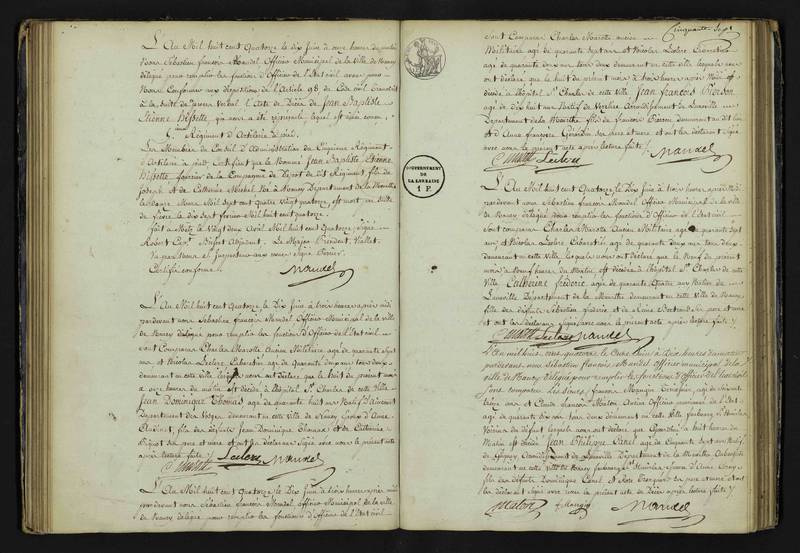 L'An Mil huit cent Quatorze le Dix Juin à onze heures du matin
Nous Sébastien françois Mandel Officier Municipal de la Ville de Nancy
délégué pour remplir les fonctions d'Officier de l'Etat civil avons pour
Nous Conformer aux dispositions de l'Article 98 du Code civil transcrit
à la suite l'Acte de Décès de Jean Baptiste
Etienne Hessette qui nous a été
Régiment d'Artillerie à pied
Les Membres du Conseil d'Administration du Cinquième Régiment
d'Artillerie à pied Certifient que le Nommé Jean Baptiste Etienne
Hessette fourrier de la Compagnie de Dépôt dudit Régiment, fils de
Joseph et de Catherine Michel Né à Nancy Département de la Meurthe
Mil sept cent quatre vingt quatorze, est mort
de fièvre le dix sept février Mil huit cent quatorze
fait à Metz le Vingt deux Avril Mil huit cent quatorze Signé
Le Major Président
Vu par Nous Signé
Certifié conforme
Mandel
L'An Mil huit cent Quatorze le Dix Juin à trois heures après midi
pardevant nous Sébastien françois Mandel Officier Municipal de la Ville
de Nancy délégué pour remplir les fonctions d'Officier de l'Etat civil
sont Comparus Charles Marotte Ancien Militaire agé de quarante sept
ans et Nicolas Leclerc Cabaretier agé de Quarante deux ans tous deux
demeurant en cette ville lesquels nous ont déclaré que le huit du présent mois
à onze heures du matin est décédé à l'hôpital St Charles de cette Ville
Jean Dominique Thomas agé de quarante huit ans Natif
Département des Vosges demeurant en cette Ville de Nancy Epoux d'Anne
fils des défunts Jean Dominique Thomas et de Catherine
ses père et mère et ont les déclarans Signé avec nous le présent acte
après lecture faite
Leclerc Mandel
L'An Mil huit cent Quatorze le Dix Juin à trois heures après midi
pardevant nous Sébastien françois Mandel Officier Municipal de la Ville
de Nancy délégué pour remplir les fonctions d'Officier de l'Etat civil
Cinquante Sept
sont Comparus Charles Marotte ancien
Militaire agé de quarante sept ans et Nicolas Leclerc Cabaretier
agé de quarante deux ans tous deux demeurant en cette ville lesquels nous
ont déclaré que le huit du présent mois à trois heures après Midi est
décédé à l'hôpital St Charles de cette Ville Jean françois Pierson
agé de dix huit ans Natif de Arrondissement de Lunéville
Département de la Meurthe fils de françois Pierson demeurant au dit lieu
et d'Anne françoise ses père et mère et ont les déclarans Signé
avec nous le présent acte après lecture faite
Leclerc Mandel
GOUVERNEMENT
DE
LA LORRAINE
1 F.
L'An Mil huit cent Quatorze le Dix Juin à trois heures après Midi
pardevant nous Sébastien françois Mandel Officier Municipal de la Ville
de Nancy délégué pour remplir les fonctions d'Officier de l'Etat civil
sont comparus Charles Marotte Ancien Militaire agé de quarante sept
ans et Nicolas Leclerc Cabaretier agé de quarante deux ans tous deux
demeurant en cette Ville lesquels nous ont déclaré que le Neuf du présent
mois à Neuf heures du Matin est décédée à l'hôpital St Charles de cette
Ville Catherine fréderic agée de quarante Quatre ans Native de
Lunéville Département de la Meurthe demeurant en cette Ville de Nancy
fille des défunts Sébastien fréderic et de Anne Bertrand ses père et mère
et ont les déclarans Signé avec nous le présent acte après lecture faite
Leclerc Mandel
L'an mil huit cens quatorze le Onze Juin à Dix heures du matin
pardevant nous Sébastien françois Mandel Officier municipal de la
Ville de Nancy délégué pour remplir les fonctions d'officier de l'état civil
sont comparus les sieurs françois Mangin agé de soixante
treize ans et Claude françois Action commis de l'Oct.
agé de quarante six ans tous deux demeurant en cette Ville faubourg St Nicolas
Voisins du défunt lesquels nous ont déclaré que huit heures du
Matin est décédé Jean Philippe Canel agé de Cinquante sept ans Natif
de Département de la Meurthe Aubergiste
demeurant en cette ville de Nancy faubourg St Nicolas Epoux d'Anne
fils des défunts Dominique Canel et ses père et mère et ont
les déclarans Signé avec nous le présent acte de Décès après lecture faite
Mangin Mandel